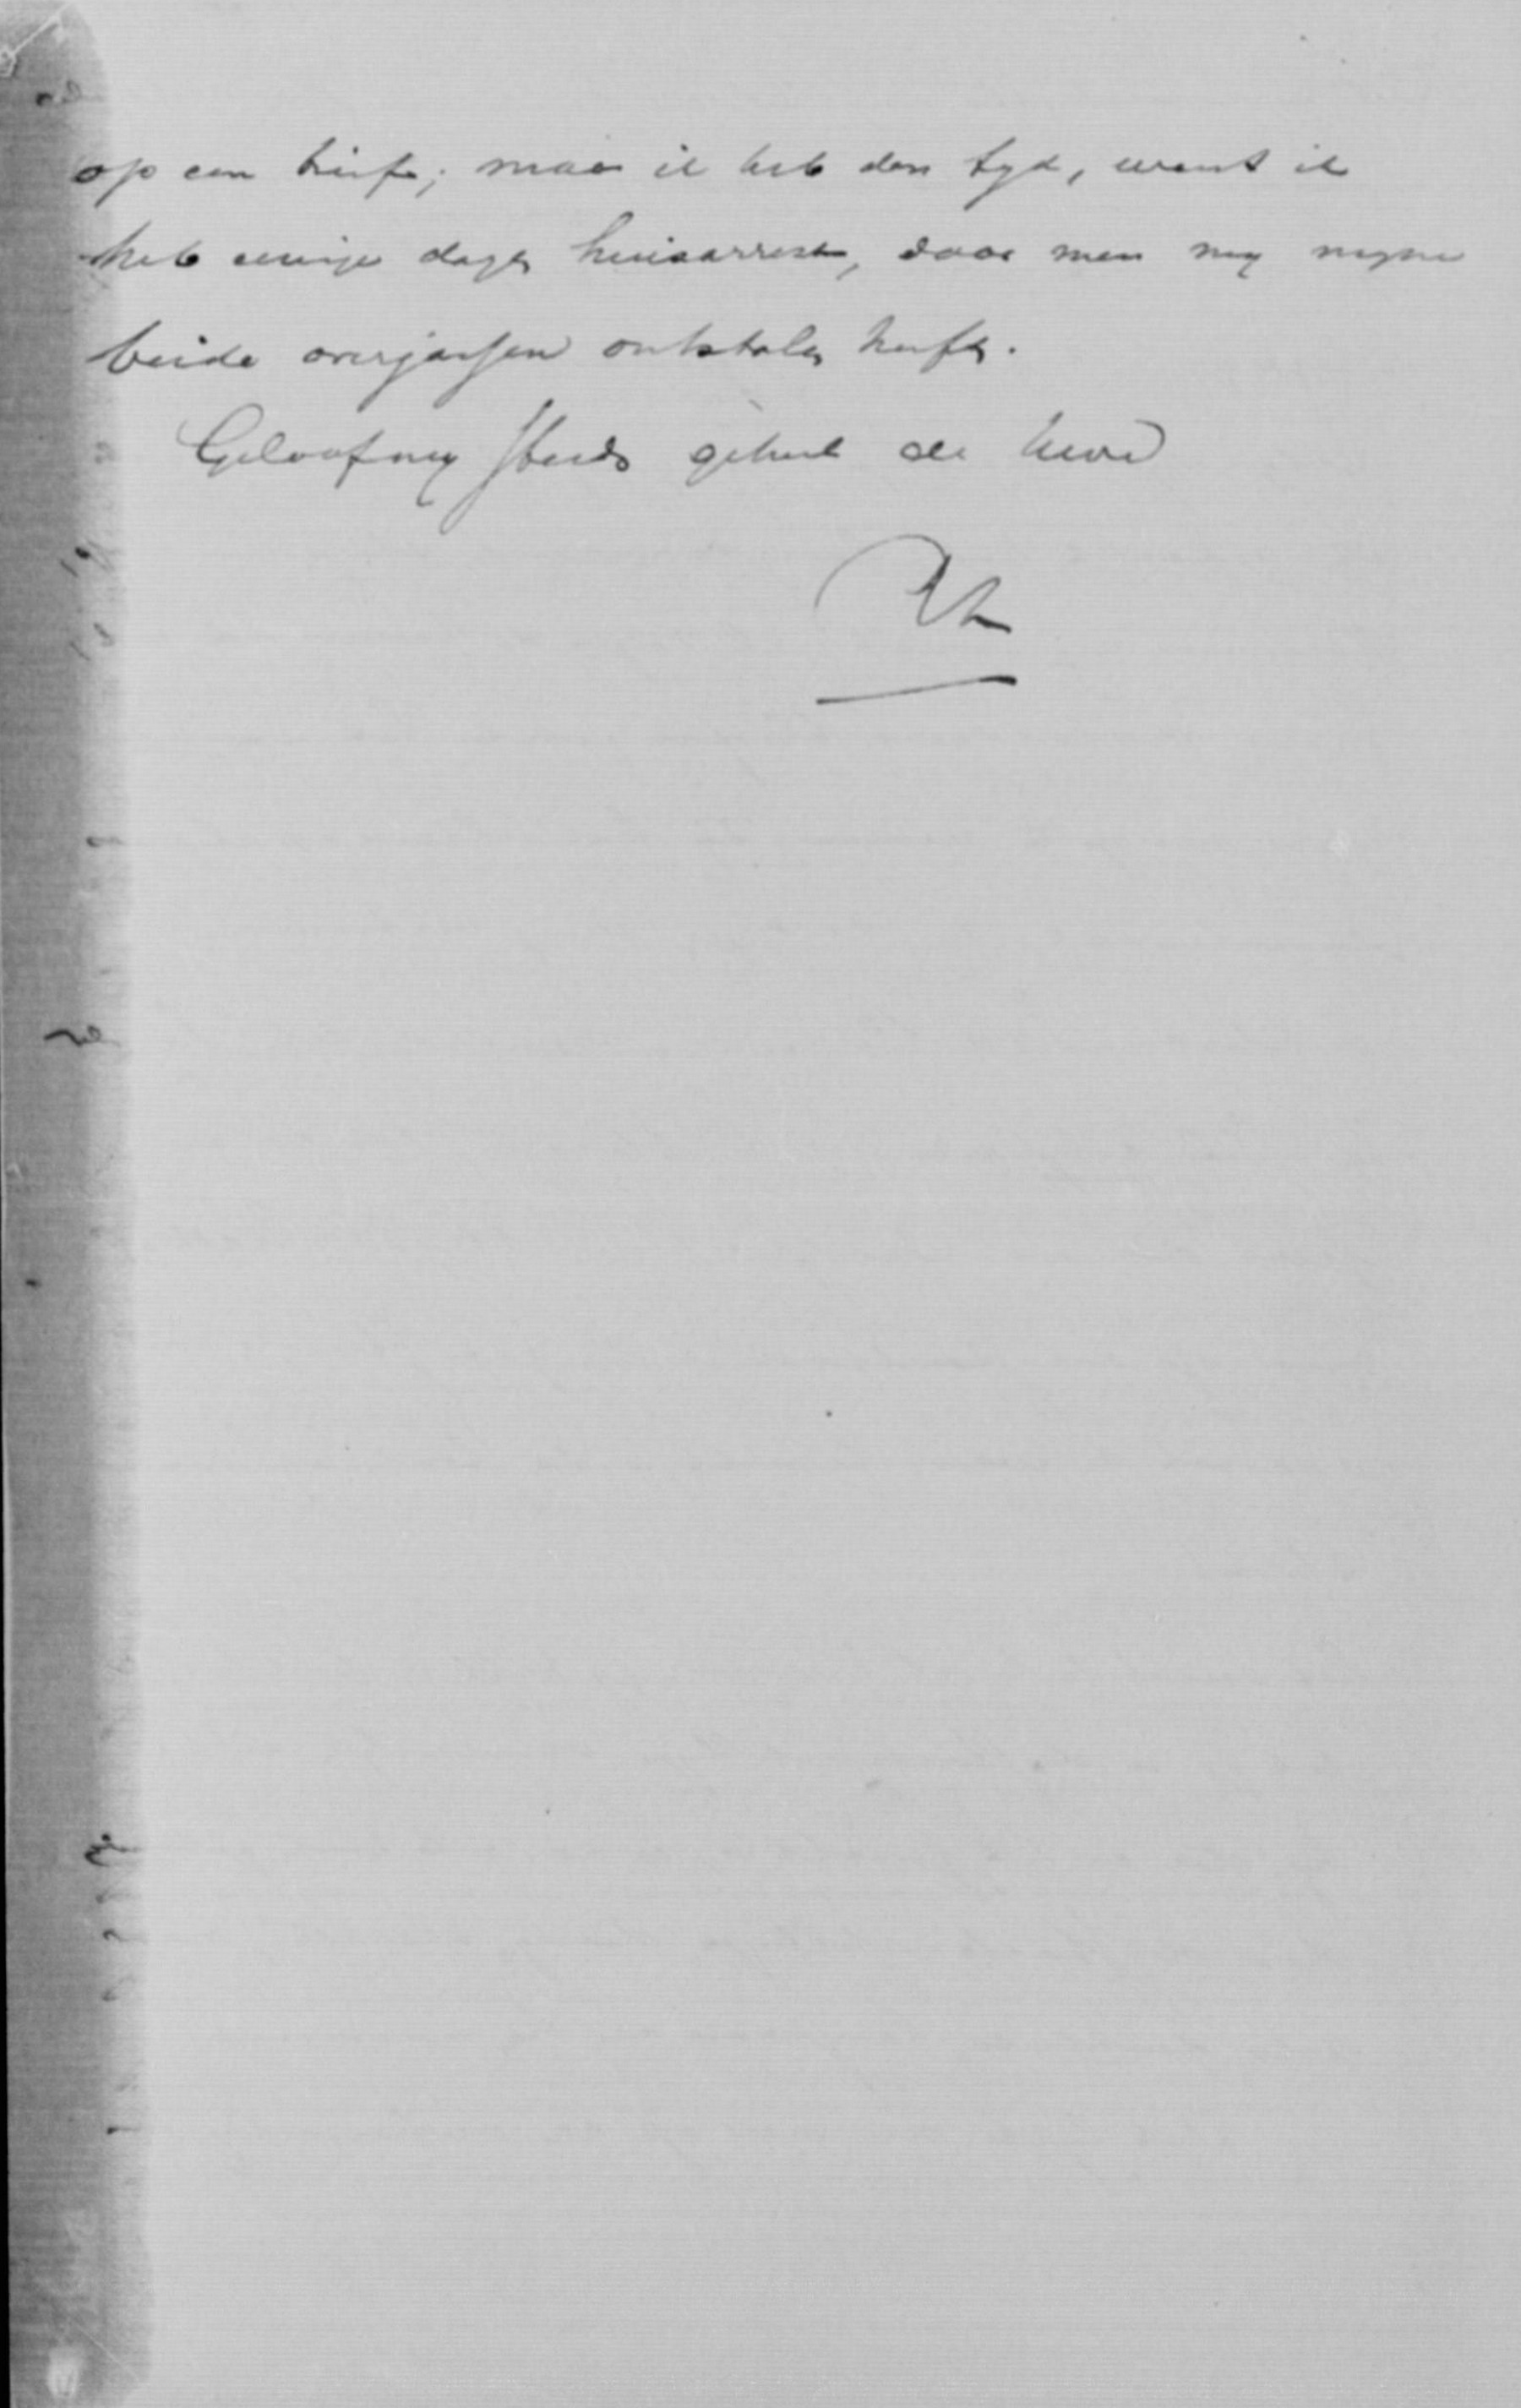 op een briefje; maar ik heb den tyd, want ik
heb eenige dagen huisarrest, daar men my myne
beide overjassen ontstolen heeft.
Geloof my steeds geheel de Uwe